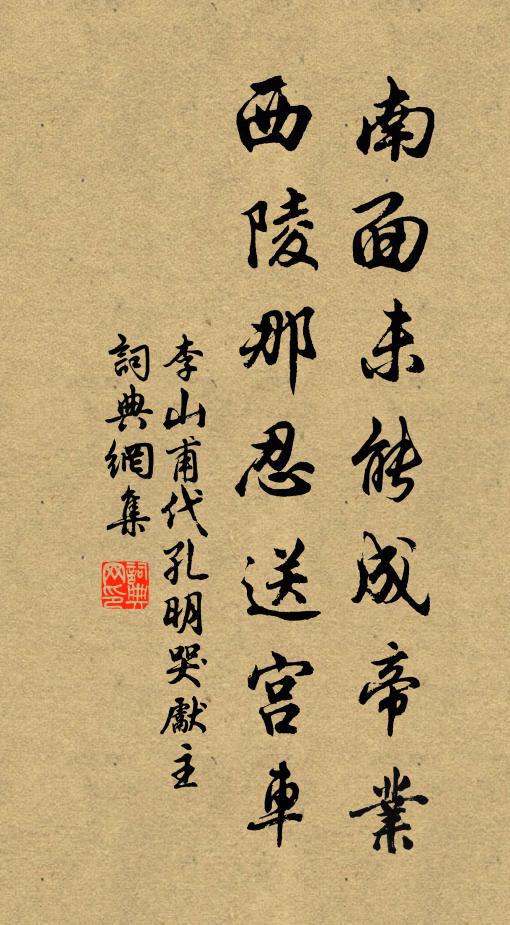 南面未能成帝業
西陵那忍送宮車
李山甫代孔明哭獻主
詞典網集
詞典
网印